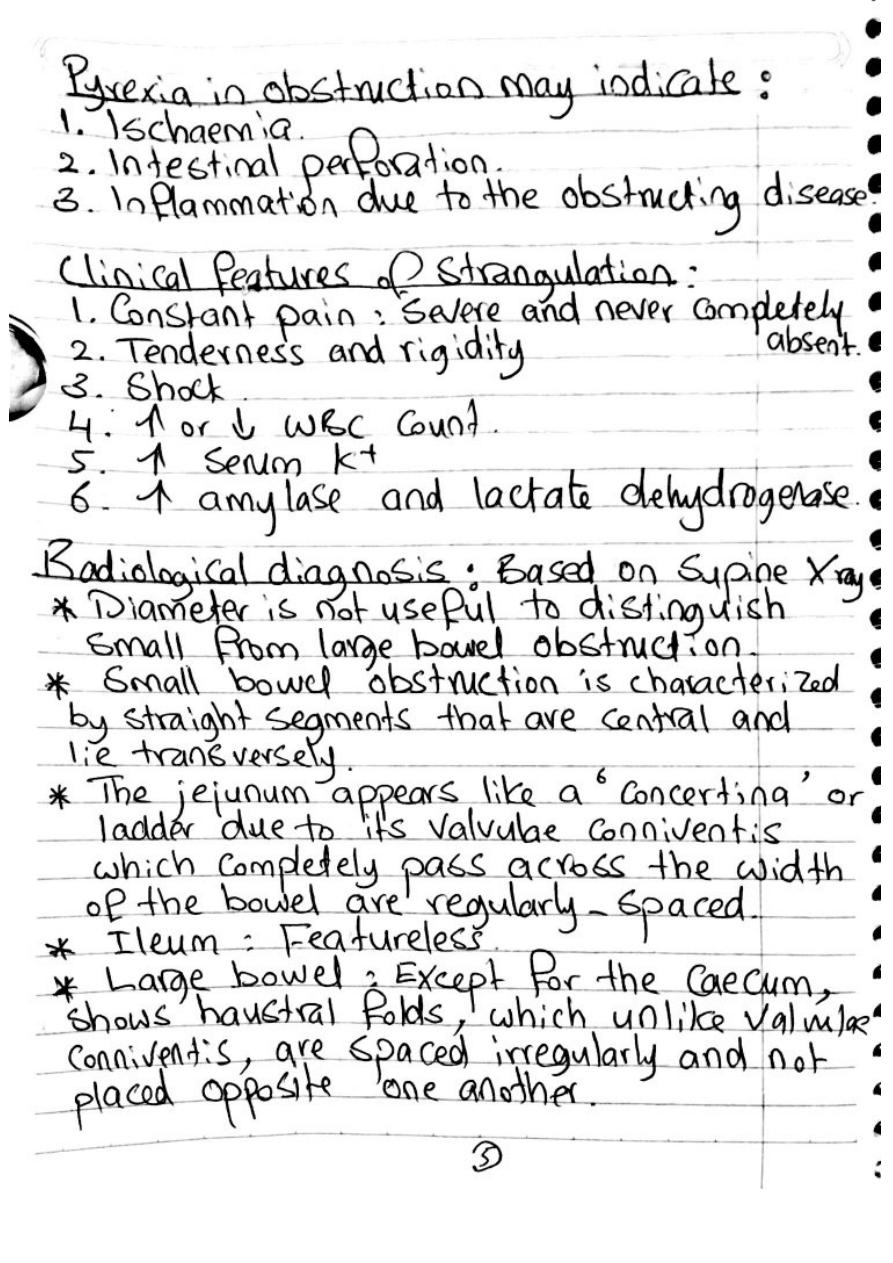 Pyrexia in obstruction may indicate :
1. Ischaemia.
2. Intestinal perforation.
3. Inflammation due to the obstructing disease.
Clinical features of strangulation :
1. Constant pain : Severe and never completely
absent.
2. Tenderness and rigidity
3. Shock
4. ↑ or ↓ WBC Count.
5. ↑ Serum K+
6. ↑ amylase and lactate dehydrogenase.
Radiological diagnosis : Based on Supine X ray
* Diameter is not useful to distinguish
small from large bowel obstruction.
* Small bowel obstruction is characterized
by straight segments that are central and
lie transversely.
* The jejunum appears like a ‘Concertina’ or
ladder due to its valvulae conniventis
which completely pass across the width
of the bowel are regularly-spaced.
* Ileum : Featureless.
* Large bowel : Except for the Caecum,
shows haustral folds, which unlike valvulae
conniventis, are spaced irregularly and not
placed opposite one another.
3